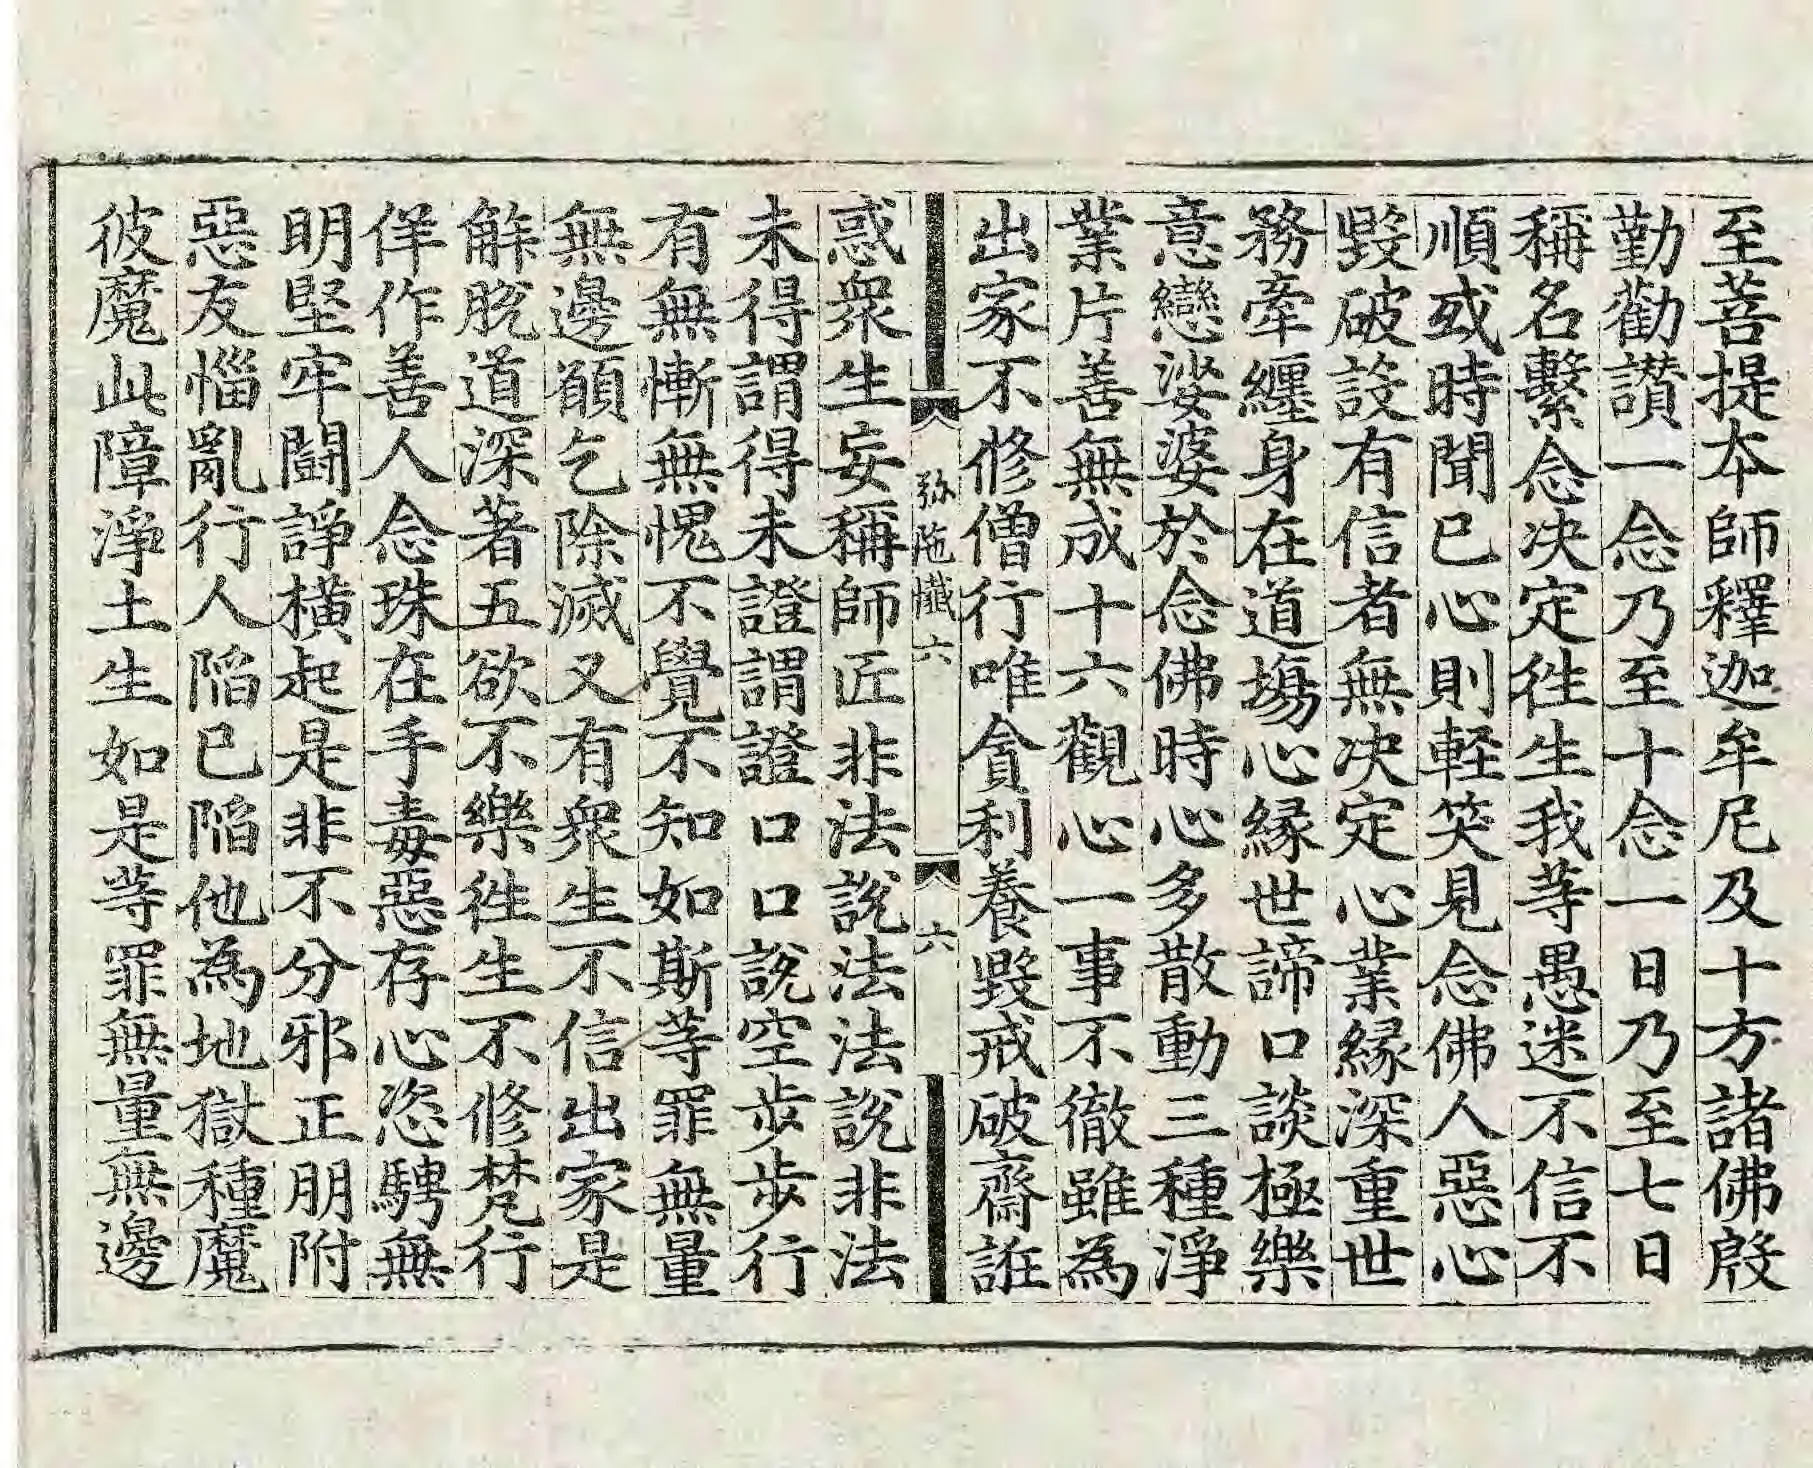 至菩提本師釋迦牟尼及十方諸佛慇
勤勸讃一念乃至十念一日乃至七日
稱名繫念决定徃生我等愚迷不信不
順或時聞已心則軽笑見念佛人惡心
毀破設有信者無决定心業縁深重世
務牽纏身在道塲心縁世諦口談極樂
意戀娑婆於念佛時心多散動三種淨
業片善無成十六觀心一事不徹雖為
出家不修僧行唯貪利養毀戒破齋誑
弥陁懺六
六
惑衆生妄稱師匠非法說法法說非法
未得謂得未證謂證口口說空步步行
有無慚無愧不覺不知如斯等罪無量
無邊願乞除滅又有衆生不信出家是
解脫道深著五欲不樂徃生不修梵行
佯作善人念珠在手毒惡存心恣騁無
明堅牢闘諍橫起是非不分邪正朋附
惡友惱亂行人陷已陷他為地獄種魔
彼魔此障淨土生如是等罪無量無邊